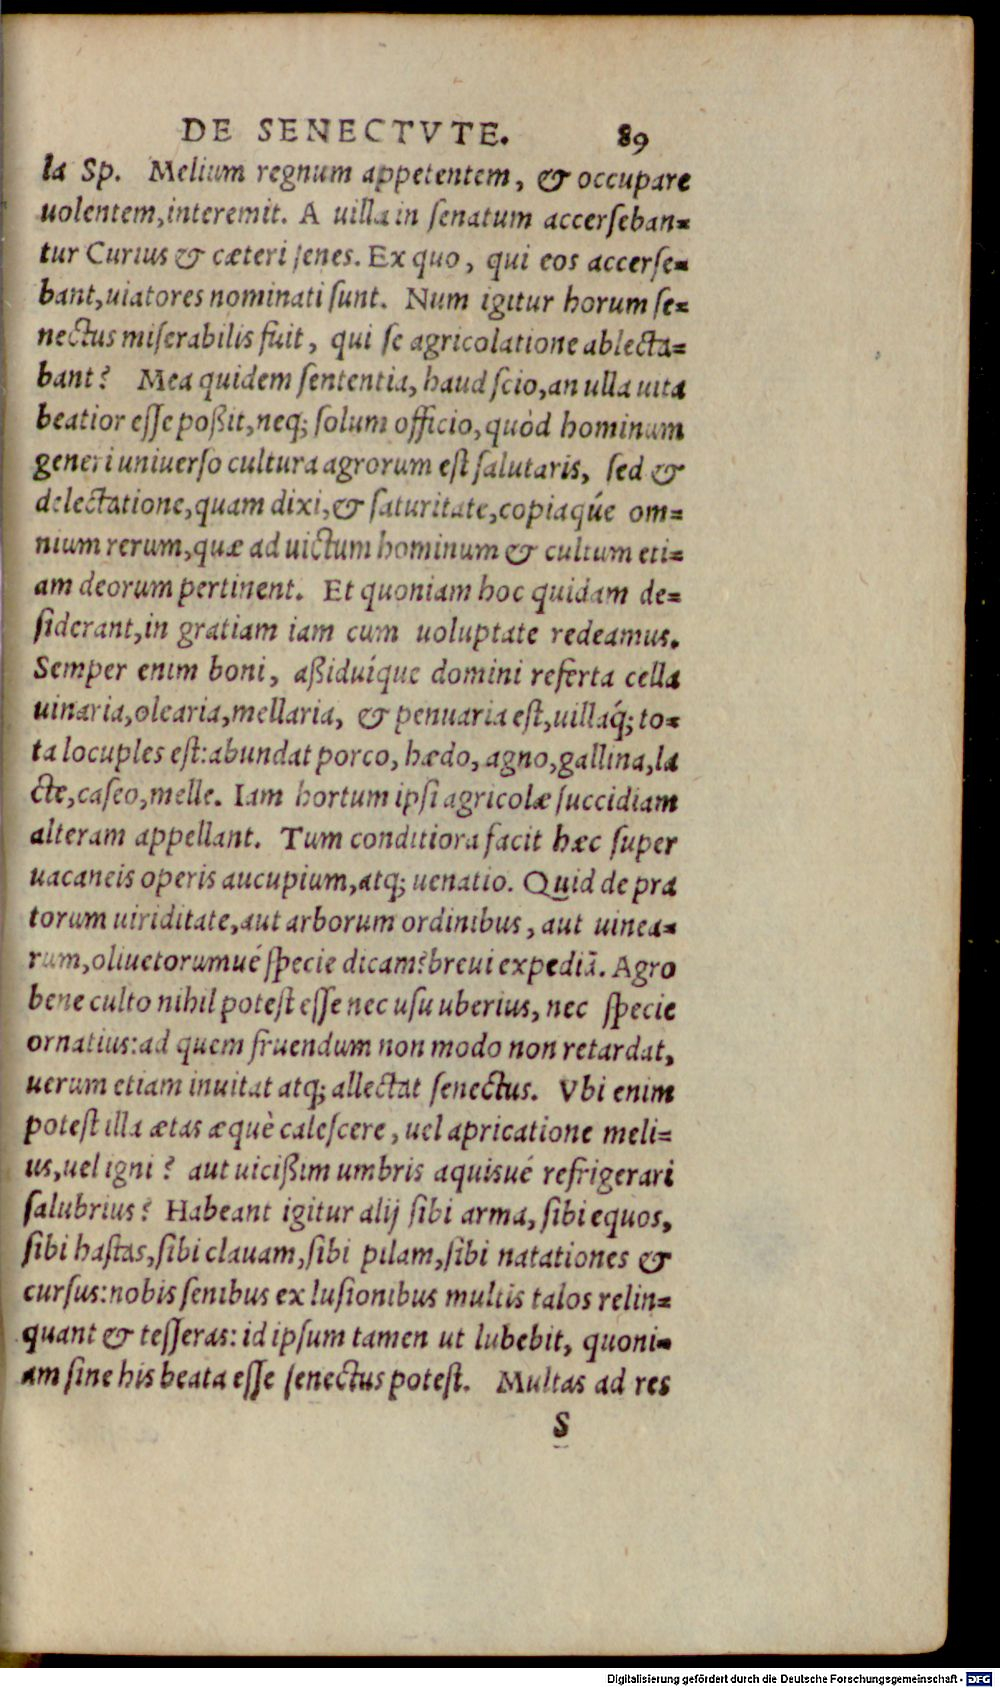 DE SENECTVTE. 89
la Sp. Melium regnum appetentem, & occupare
uolentem, interemit. A uilla in ſenatum accerſeban=
tur Curius & cæteri ſenes. Ex quo, qui eos accerſe=
bant, uiatores nominati ſunt. Num igitur horum ſe=
nectus miſerabilis fuit, qui ſe agricolatione ablecta=
bant? Mea quidem ſententia, haud ſcio, an ulla uita
beatior eſſe poßit, neq; ſolum officio, quòd hominum
generi uniuerſo cultura agrorum eſt ſalutaris, ſed &
delectatione, quam dixi, & ſaturitate, copiaqúe om=
nium rerum, quæ ad uictum hominum & cultum eti=
am deorum pertinent. Et quoniam hoc quidam de=
ſiderant, in gratiam iam cum uoluptate redeamus.
Semper enim boni, aßiduíque domini referta cella
uinaria, olearia, mellaria, & penuaria eſt, uillaq́; to=
ta locuples eſt: abundat porco, hædo, agno, gallina, la
cte, caſeo, melle. Iam hortum ipſi agricolæ ſuccidiam
alteram appellant. Tum conditiora facit hæc ſuper
uacaneis operis aucupium, atq; uenatio. Quid de pra
torum uiriditate, aut arborum ordinibus, aut uinea=
rum, oliuetorumué ſpecie dicam? breui expediā. Agro
bene culto nihil poteſt eſſe nec uſu uberius, nec ſpecie
ornatius: ad quem fruendum non modo non retardat,
uerum etiam inuitat atq; allectat ſenectus. Vbi enim
poteſt illa ætas æquè caleſcere, uel apricatione meli=
us, uel igni? aut uicißim umbris aquisué refrigerari
ſalubrius? Habeant igitur alij ſibi arma, ſibi equos,
ſibi haſtas, ſibi clauam, ſibi pilam, ſibi natationes &
curſus: nobis ſenibus ex luſionibus multis talos relin=
quant & teſſeras: id ipſum tamen ut lubebit, quoni=
am ſine his beata eſſe ſenectus poteſt. Multas ad res
S
Digitalisierung gefördert durch die Deutsche Forschungsgemeinschaft - DFG